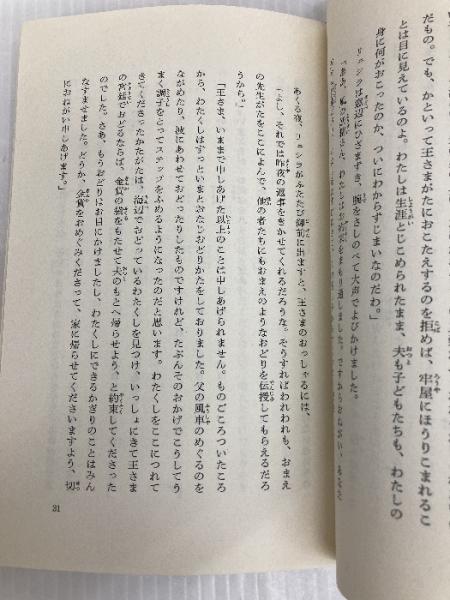 だもの。でも、かといって王さまがたにおこたえするのを拒めば、牢屋にほうりこまれるこ
とは目に見えているのよ。わたしは生涯とじこめられたまま、夫も子どもたちも、わたしの
身に何がおこったのか、ついにわからずじまいなのだわ。」
リュシラは窓辺にひざまずき、腕をさしのべて大声でよびかけました。
あくる夜、リュシラがふたたび御前に出ますと、王さまのおっしゃるには、
「よし、それでは昨夜の返事をきかせてくれるだろうな。そうすればわれわれも、おまえ
の先生がたをここによんで、他の者たちにもおまえのようなおどりを伝授してもらえるだろ
うから。」
「王さま、いままで申しあげた以上のことは申しあげられません。ものごころついたころ
から、わたくしはずっといまとおなじおどりかたをしておりました。父の風車のめぐるのを
ながめたり、波にあわせておどったりしたものですけれど、たぶんそのおかげでこうしてう
まく調子をとってステップをふめるようになったのだと思います。わたくしをここにつれて
きてくださったかたがたは、海辺でおどっているわたくしを見つけ、いっしょにきて王さま
の宮廷でおどるならば、金貨の袋をもたせて夫のもとへ帰らせよう、と約束してくださった
のでした。さあ、もうおどりはお目にかけましたし、わたくしにできるかぎりのことはみん
なすませました。どうか、金貨をおめぐみくださって、家に帰らせてくださいますよう、切
におねがい申しあげます。」
31